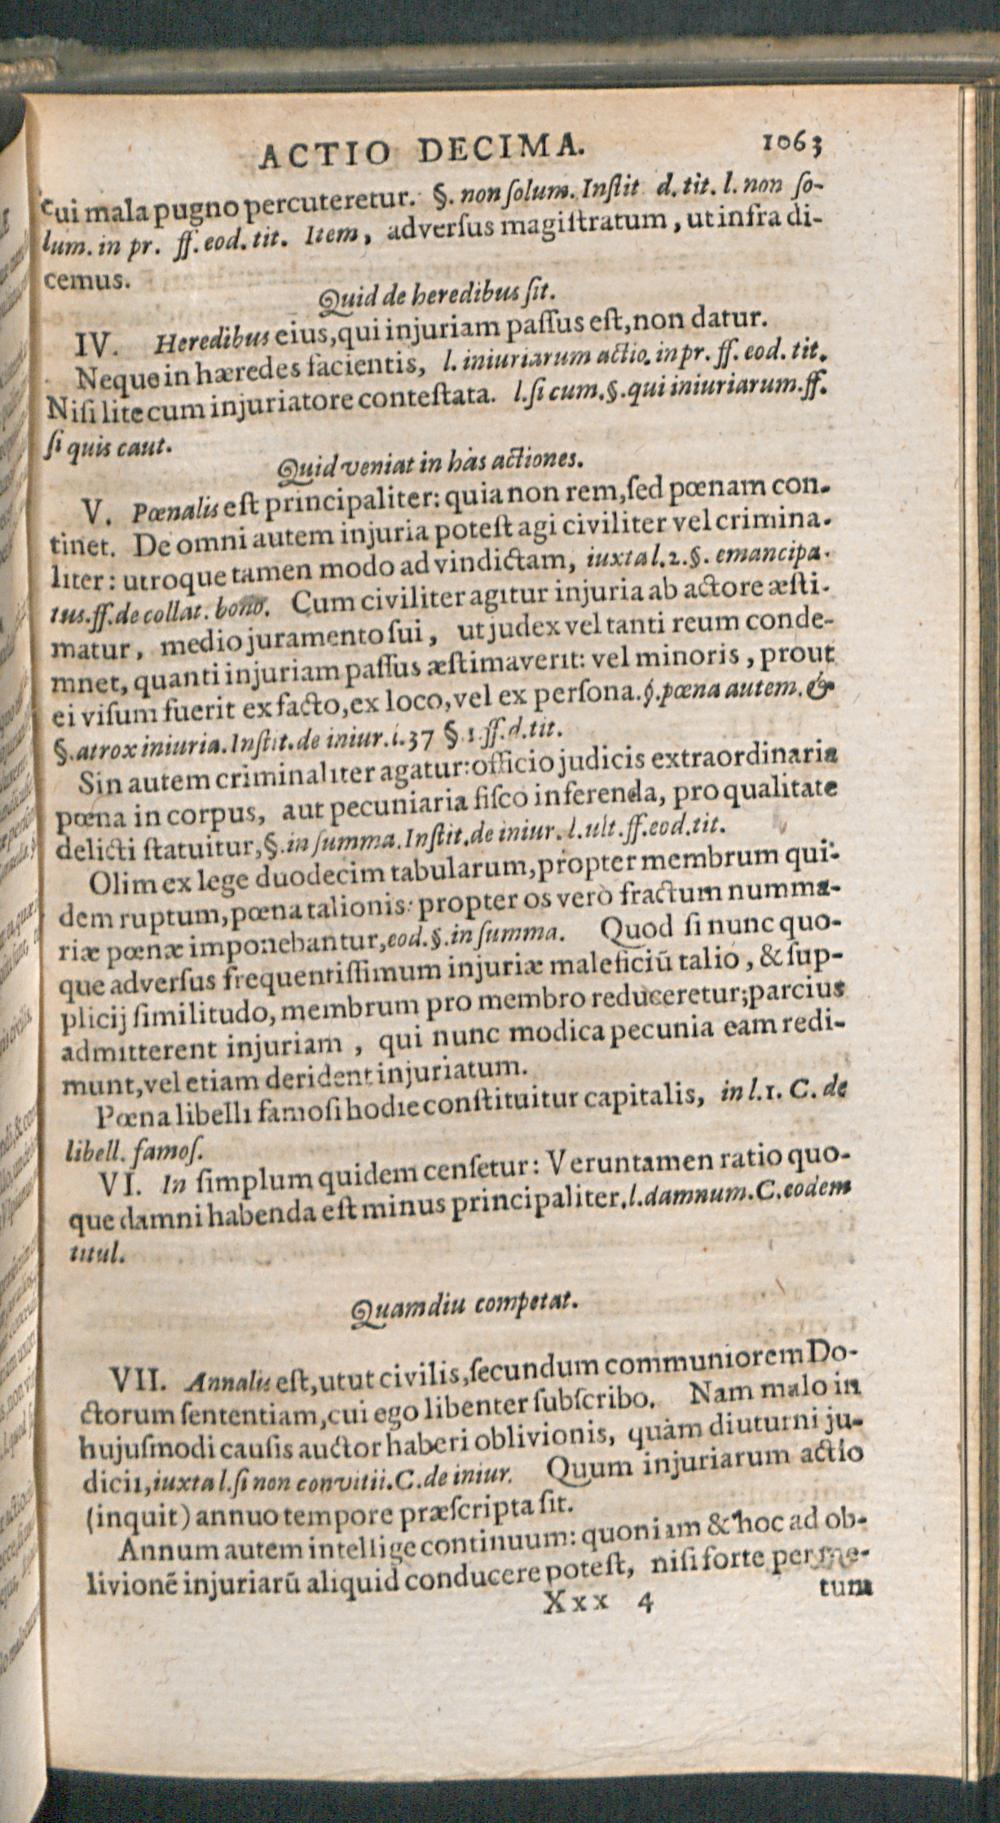 ACTIO DECIMA. 1063
cui mala pugno percuteretur. §. non ſolum. Inſtit d. tit. l. non ſo-
lum. in pr. ff. eod. tit. Item, adverſus magiſtratum, ut infra di-
cemus.
Quid de heredibus ſit.
IV. Heredibus eius, qui injuriam paſſus eſt, non datur.
Neque in hæredes facientis, l. iniuriarum actio. in pr. ff. eod. tit.
Niſi lite cum injuriatore conteſtata. l. ſi cum. §. qui iniuriarum. ff.
ſi quis caut.
Quid veniat in hàs actiones.
V. Pœnalis eſt principaliter: quia non rem, ſed pœnam con-
tinet. De omni autem injuria poteſt agi civiliter vel crimina-
liter: utroque tamen modo ad vindictam, iuxta l. 2. §. emancipa-
tus. ff. de collat. bono. Cum civiliter agitur injuria ab actore æſti-
matur, medio juramento ſui, ut judex vel tanti reum conde-
mnet, quanti injuriam paſſus æſtimaverit: vel minoris, prout
ei viſum fuerit ex facto, ex loco, vel ex perſona. §. pœna autem. &
§. atrox iniuria. Inſtit. de iniur. l. 37 § 1. ff. d. tit.
Sin autem criminaliter agatur: officio judicis extraordinaria
pœna in corpus, aut pecuniaria fiſco inferenda, pro qualitate
delicti ſtatuitur, §. in ſumma. Inſtit. de iniur. l. ult. ff. eod. tit.
Olim ex lege duodecim tabularum, propter membrum qui-
dem ruptum, pœna talionis: propter os verò fractum numma-
riæ pœnæ imponebantur, eod. §. in ſumma. Quod ſi nunc quo-
que adverſus frequentiſſimum injuriæ maleficiū talio, & ſup-
plicij ſimilitudo, membrum pro membro reduceretur; parcius
admitterent injuriam, qui nunc modica pecunia eam redi-
munt, vel etiam derident injuriatum.
Pœna libelli famoſi hodie conſtituitur capitalis, in l. 1. C. de
libell. famoſ.
VI. In ſimplum quidem cenſetur: Veruntamen ratio quo-
que damni habenda eſt minus principaliter. l. damnum. C. eodem
titul.
Quamdiu competat.
VII. Annalis eſt, utut civilis, ſecundum communiorem Do-
ctorum ſententiam, cui ego libenter ſubſcribo. Nam malo in
hujuſmodi cauſis auctor haberi oblivionis, quàm diuturni ju-
dicii, iuxta l. ſi non convitii. C. de iniur. Quum injuriarum actio
(inquit) annuo tempore præſcripta ſit.
Annum autem intellige continuum: quoniam & hoc ad ob-
livionē injuriarū aliquid conducere poteſt, niſi forte per me-
Xxx 4 tum